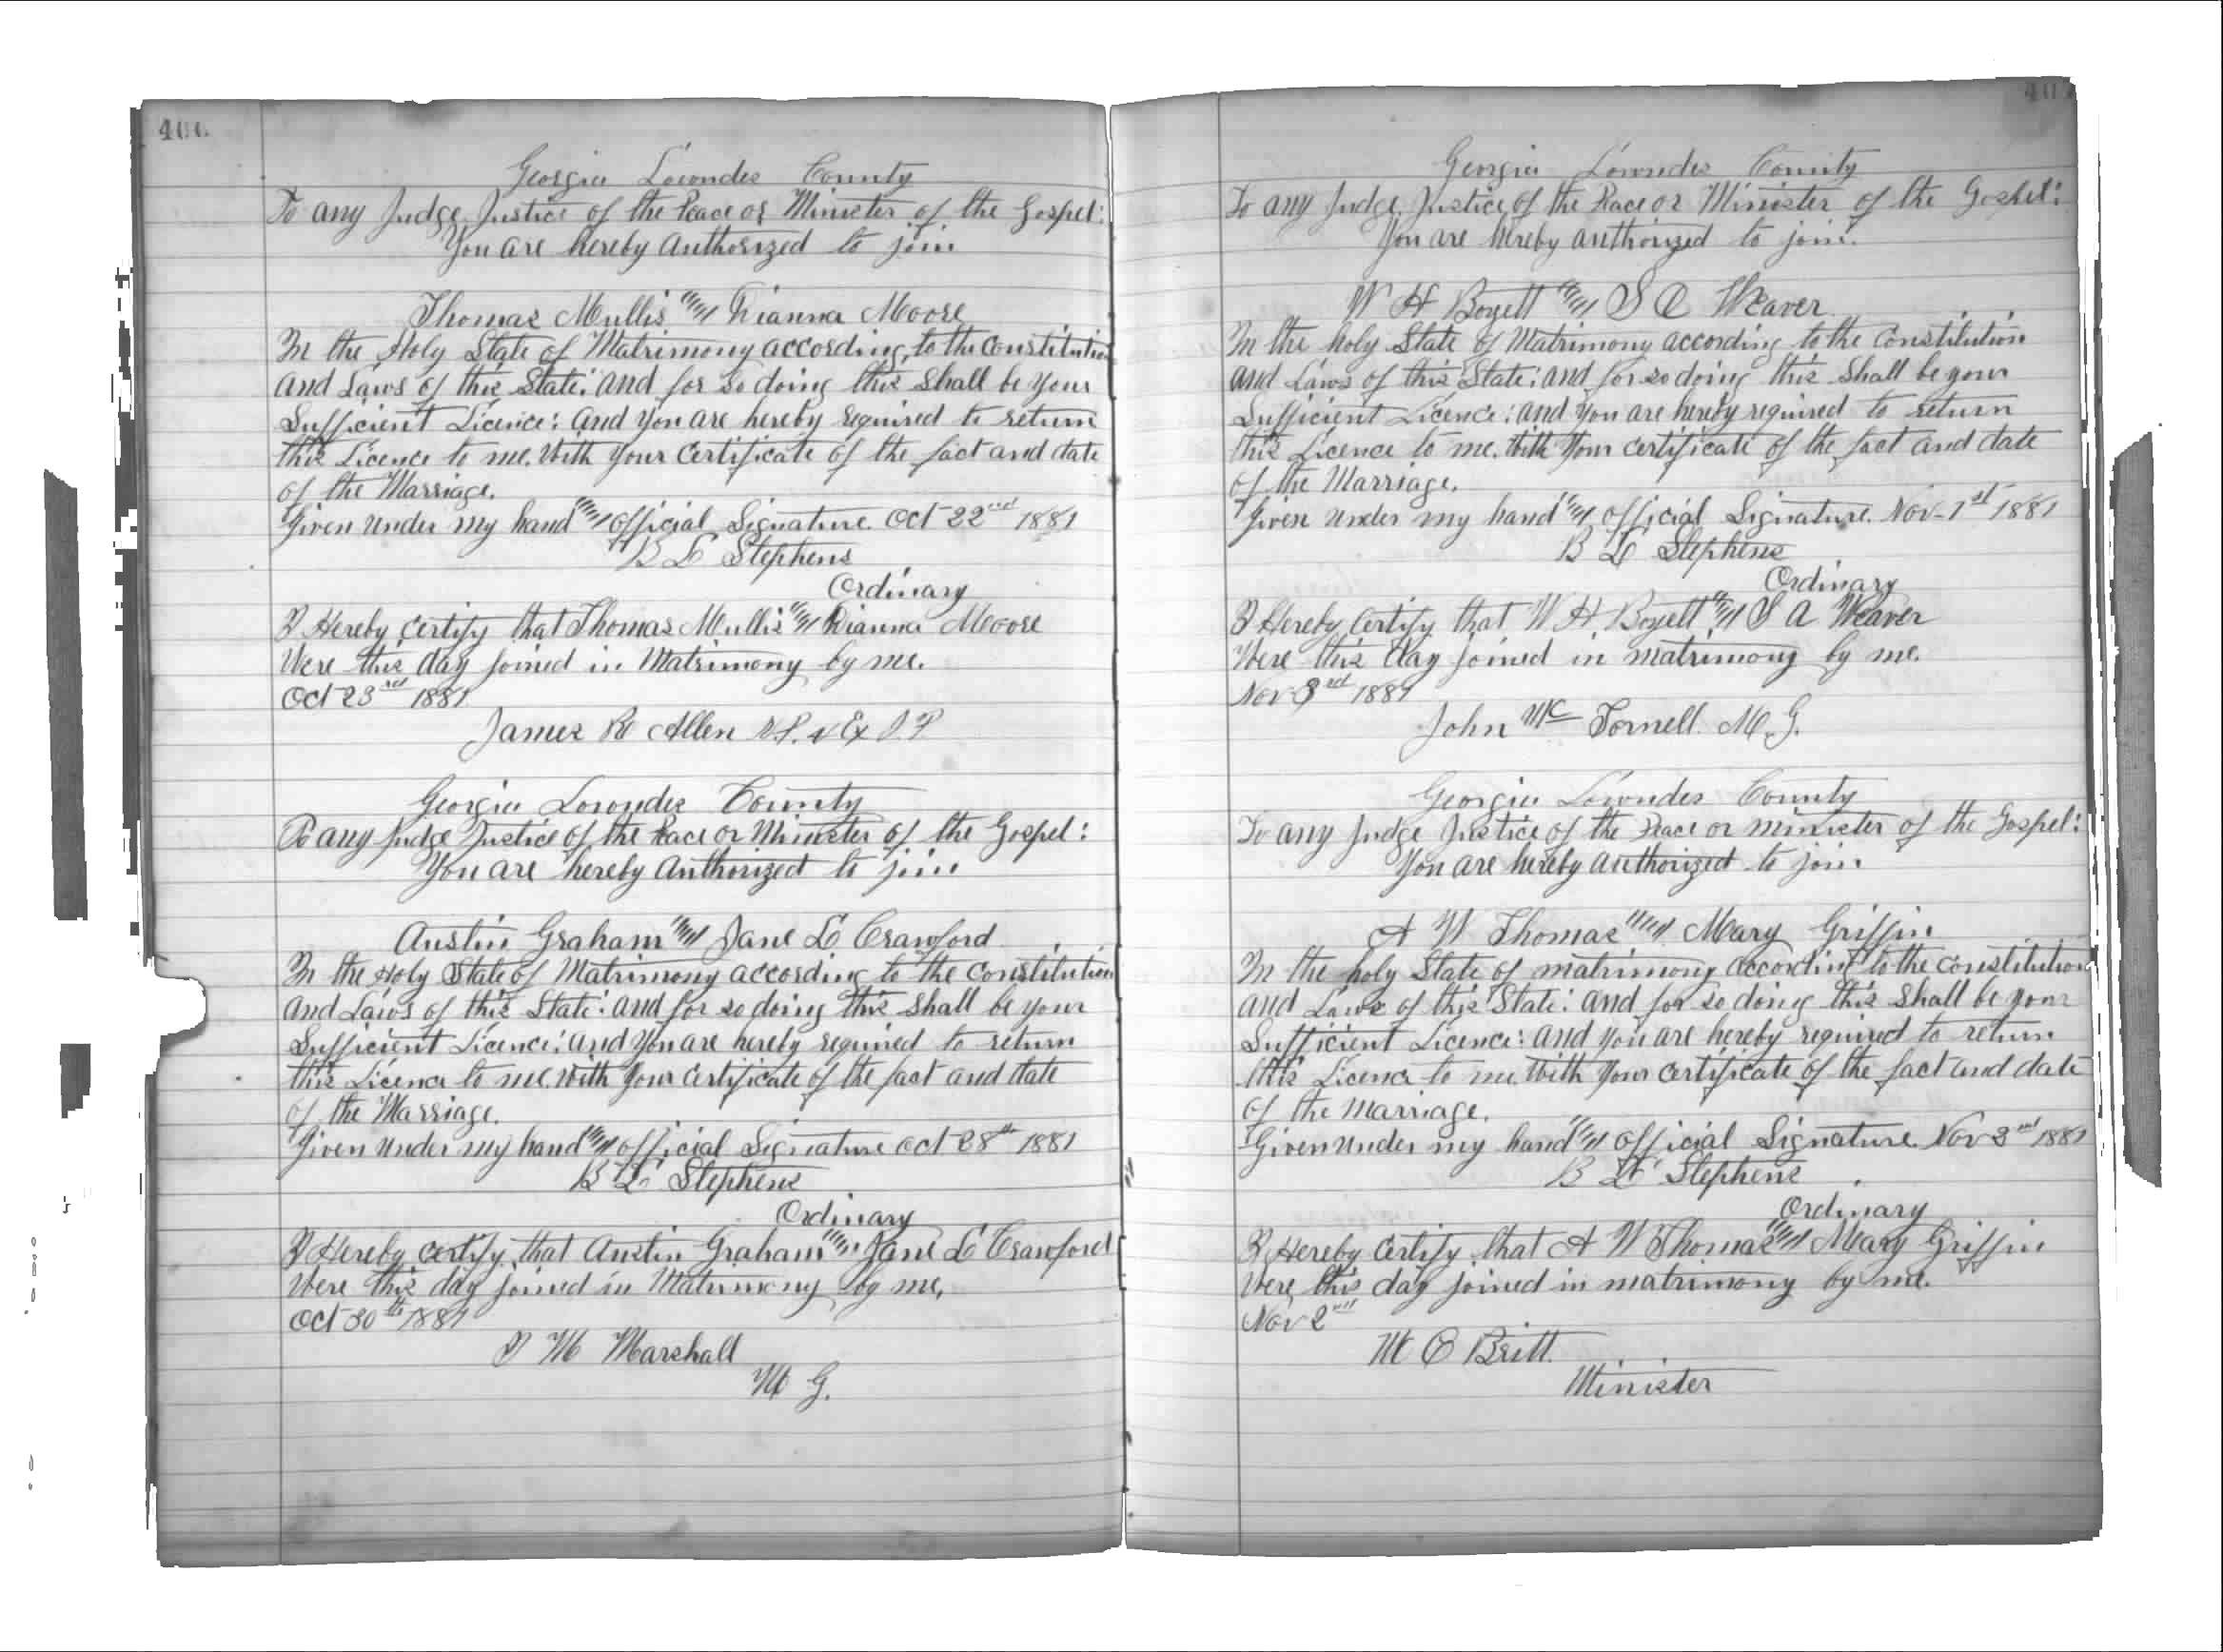 Georgia Lowndes County
To any Judge, Justice of the Peace or Minister of the Gospel:
You are hereby Authorized to join
Thomas Mullis and Dianna Moore
In the Holy State of Matrimony according to the Constitution
and Laws of this State: and for so doing this Shall be Your
Sufficient Licence: and You are hereby required to return
this Licence to me. With Your Certificate of the fact and date
of the Marriage.
Given under my hand and official Signature. Oct 22nd 1881
B L Stephens
Ordinary
I Hereby Certify that Thomas Mullis and Dianna Moore
Were this day joined in Matrimony by me.
Oct 23rd 1881
James Allen
Georgia Lowndes County
To any Judge Justice of the Peace or Minister of the Gospel:
You are hereby Authorized to join
Austin Graham and Jane L Crawford
In the Holy State of Matrimony according to the Constitution
and Laws of this State: and for so doing this Shall be your
Sufficient Licence: and You are hereby required to return
this Licence to me, With Your Certificate of the fact and date
of the Marriage.
Given under my hand and official Signature Oct 28th 1881
B L Stephens
Ordinary
I Hereby Certify that Austin Graham and Jane L Crawford
Were this day joined in Matrimony by me,
Oct 30th 1881
M Marshall
M G.
Georgia Lowndes County
To any Judge, Justice of the Peace or Minister of the Gospel:
You are hereby authorized to join.
W H Boyett and S A Weaver
In the holy State of Matrimony according to the Constitution
and Laws of this State: and for so doing this Shall be your
Sufficient Licence: and You are hereby required to return
this Licence to me. With Your Certificate of the fact and date
of the Marriage.
Given under my hand and official Signature. Nov-1st 1881
B L Stephens
Ordinary
I Hereby Certify that W H Boyett and S A Weaver
Were this day joined in matrimony by me.
Nov-3rd 1881
John Mc Fornell. M. G.
Georgia Lowndes County
To any Judge Justice of the Peace or minister of the Gospel:
You are hereby authorized to join
A W Thomas and Mary Griffin
In the holy State of matrimony according to the Constitution
and Laws of this State: and for so doing this Shall be your
Sufficient Licence: and you are hereby required to return
this Licence to me. With Your Certificate of the fact and date
of the marriage.
Given under my hand and official Signature. Nov 2nd 1881
B L Stephens
Ordinary
I Hereby Certify that A W Thomas and Mary Griffin
Were this day joined in matrimony by me.
Nov 2nd
Britt.
Minister